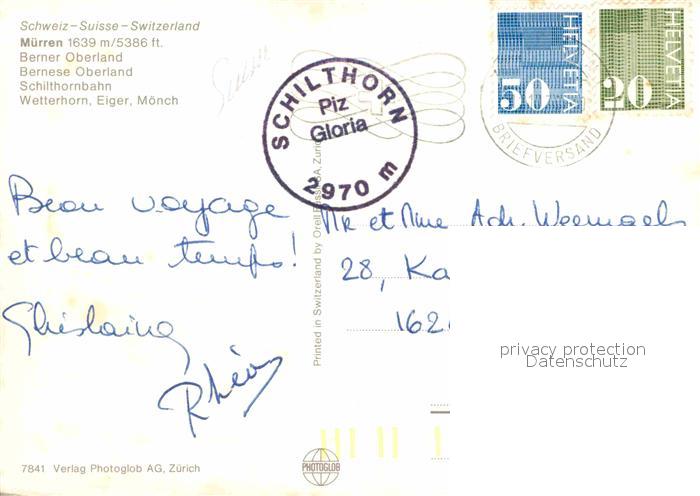 Schweiz – Suisse – Switzerland
Mürren 1639 m/5386 ft.
Berner Oberland
Bernese Oberland
Schilthornbahn
Wetterhorn, Eiger, Mönch
Suisse
SCHILTHORN
Piz
Gloria
2970 m
HELVETIA
50
HELVETIA
20
BRIEFVERSAND
Beau voyage
et beau temps!
Ghislaine
Mr et Mme Adr. Weemaels
28, Ka
1621
privacy protection
Datenschutz
Printed in Switzerland by Orell Füssli SA, Zürich
7841 Verlag Photoglob AG, Zürich
PHOTOGLOB